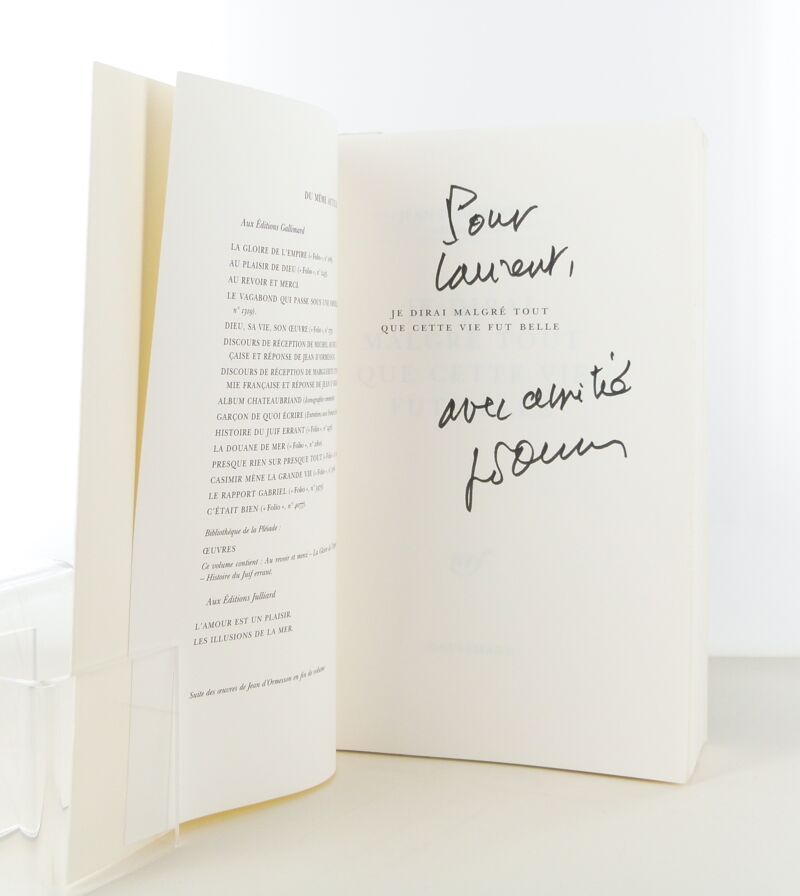 DU MÊME
Aux Éditions Gallimard
LA GLOIRE DE L'EMPIRE (« Folio », n°
AU PLAISIR DE DIEU (« Folio », n°
AU REVOIR ET MERCI.
LE VAGABOND QUI PASSE SOUS UNE
n° 1319).
DIEU, SA VIE, SON ŒUVRE (« Folio », n°
DISCOURS DE RÉCEPTION DE MICHEL
ÇAISE ET RÉPONSE DE JEAN D'ORMESSON
DISCOURS DE RÉCEPTION DE MARGUERITE
MIE FRANÇAISE ET RÉPONSE DE JEAN
ALBUM CHATEAUBRIAND (Iconographie
GARÇON DE QUOI ÉCRIRE (Entretiens avec
HISTOIRE DU JUIF ERRANT (« Folio », n°
LA DOUANE DE MER (« Folio », n°
PRESQUE RIEN SUR PRESQUE TOUT (« Folio »
CASIMIR MÈNE LA GRANDE VIE (« Folio », n°
LE RAPPORT GABRIEL (« Folio », n° 3475).
C'ÉTAIT BIEN (« Folio », n° 4077).
Bibliothèque de la Pléiade :
ŒUVRES
Ce volume contient : Au revoir et merci – La Gloire de
– Histoire du Juif errant.
Aux Éditions Julliard
L'AMOUR EST UN PLAISIR.
LES ILLUSIONS DE LA MER.
Suite des œuvres de Jean d'Ormesson en fin de volume
Pour
Laurent,
JE DIRAI MALGRÉ TOUT
QUE CETTE VIE FUT BELLE
avec amitié